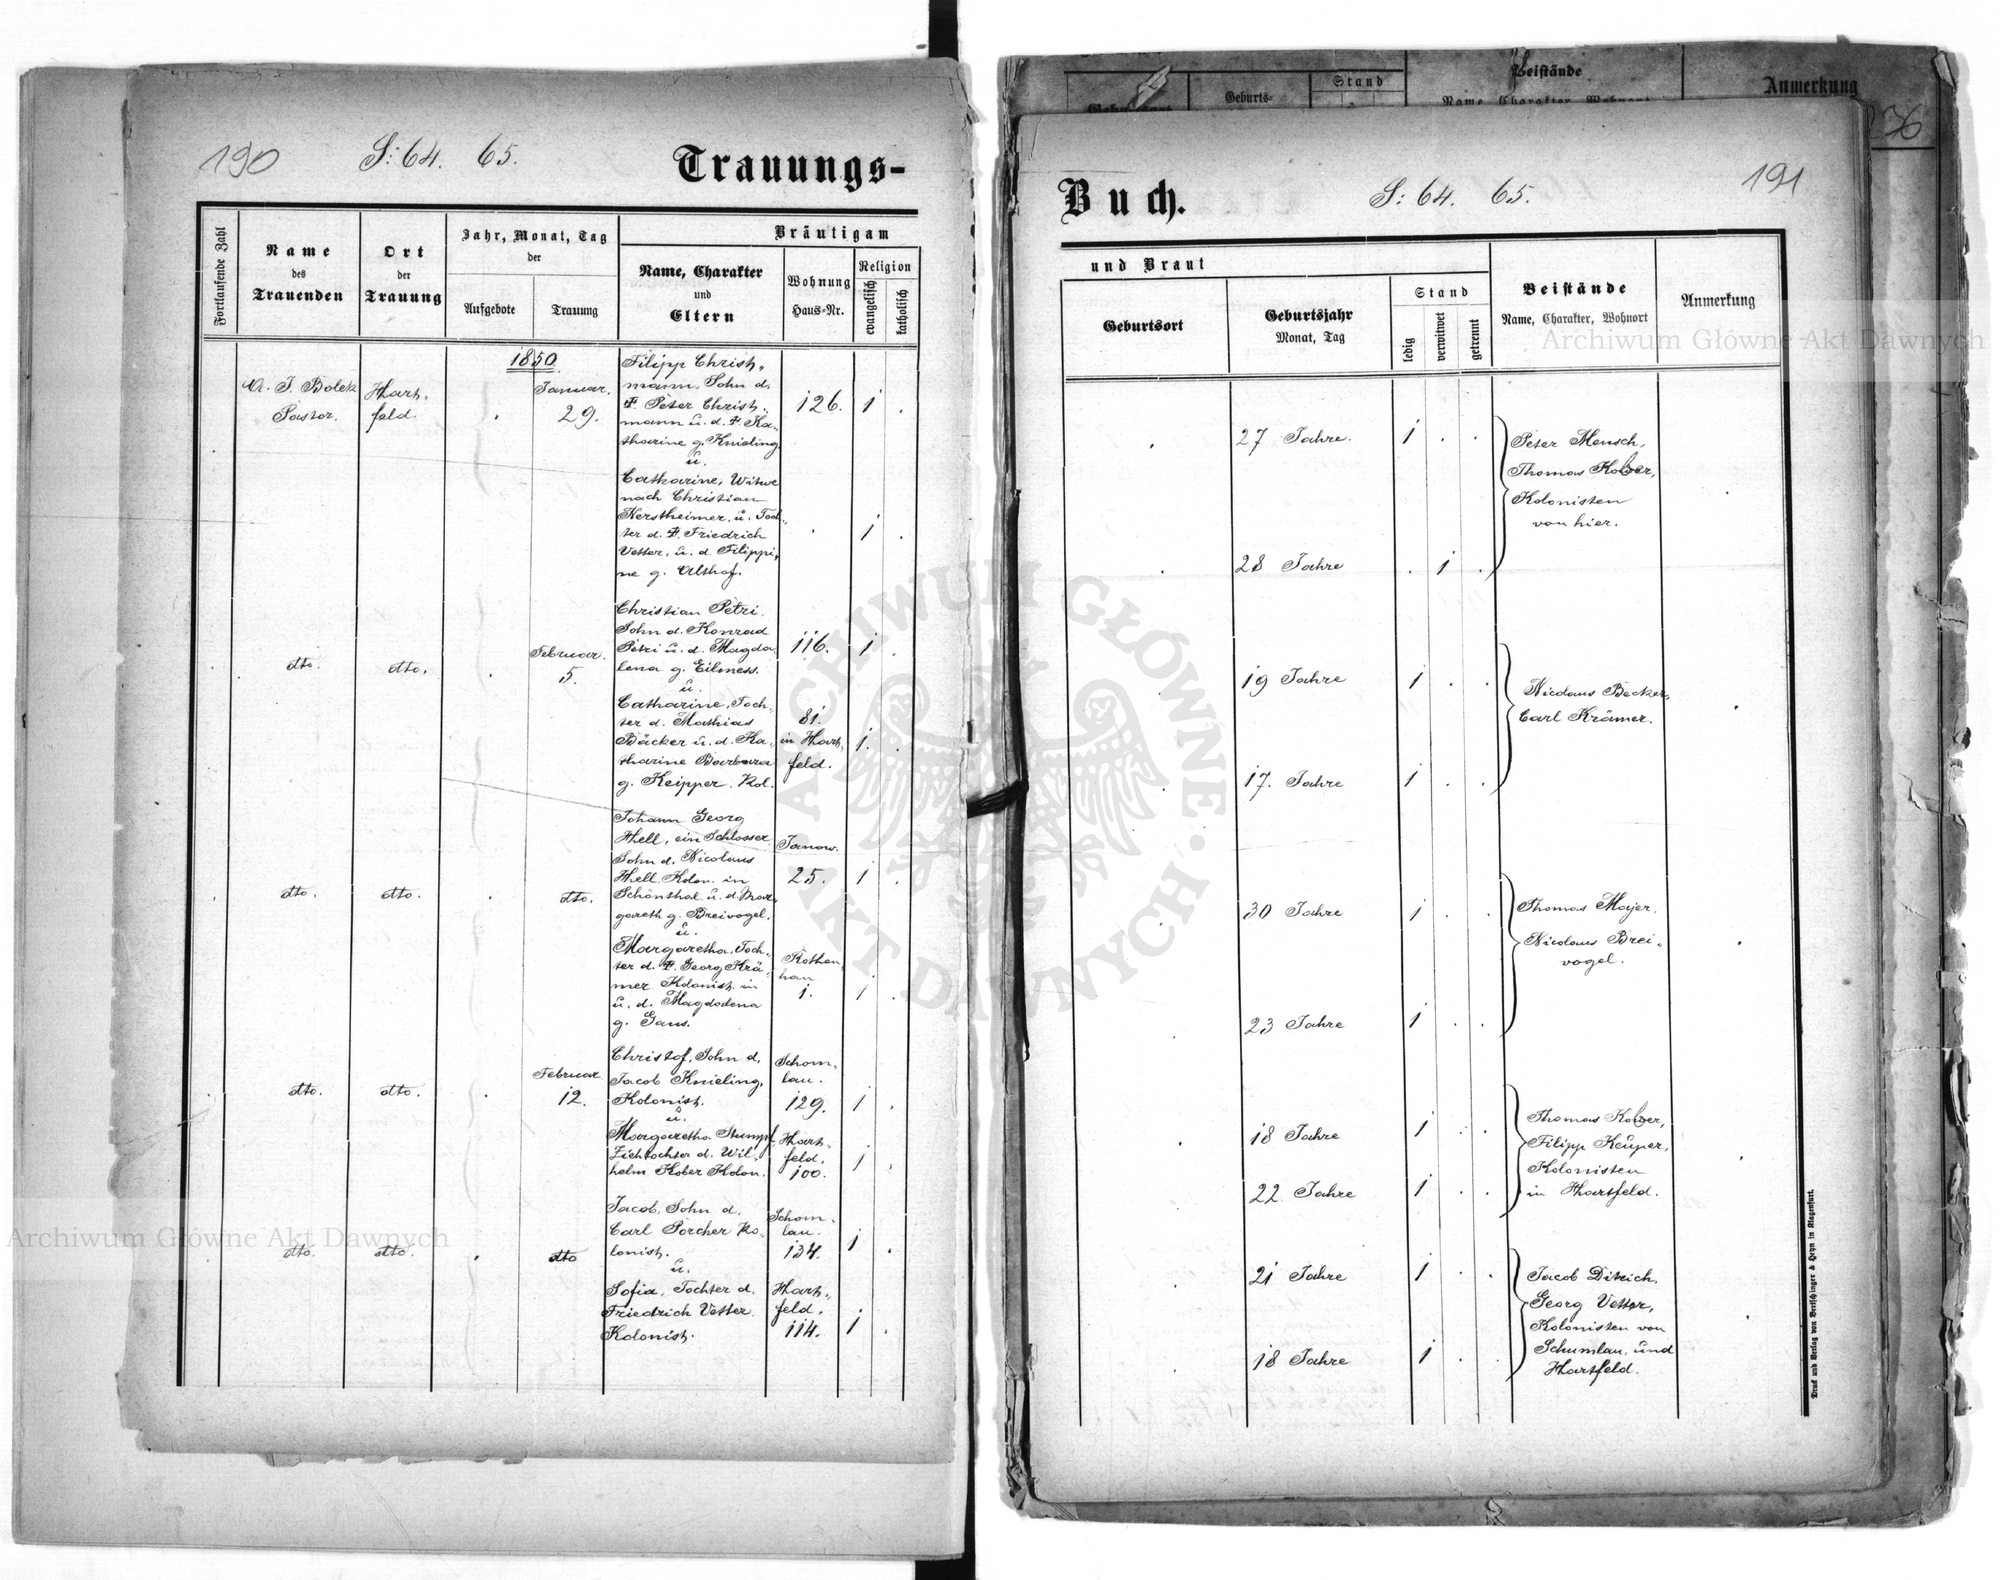 190
S: 64. 65.
Trauungs-
Fortlaufende Zahl
Name
des
Trauenden
Ort
der
Trauung
Jahr, Monat, Tag
der
Aufgebote
Trauung
Bräutigam
Name, Charakter
und
Eltern
Wohnung
Haus-Nr.
Religion
evangelisch
katholisch
1850.
A. J. Bolek
Pastor.
Hart-
feld.
Januar.
29.
Filipp Christ-
mann, Sohn d.
Ŧ Peter Christ-
mann u. d. Ŧ Ka-
tharine g. Knieling.
u.
126. 1 .
Catharine, Witwe
nach Christian
Kerstheimer, u. Toch-
ter d. Ŧ Friedrich
Vetter, u. d. Filippi-
ne g. Althof.
. 1 .
dto. dto.
Februar.
5.
Christian Petri.
Sohn d. Konrad
Petri u. d. Magda-
lena g. Eilmess.
u.
116. 1 .
Catharine, Toch-
ter d. Mathias
Bäcker u. d. Ka-
tharine Barbara
g. Keipper. Kol.
81.
in Hart-
feld.
1. .
dto. dto. . dto.
Johann Georg
Hell, ein Schlosser
Sohn d. Nicolaus
Hell, Kolon. in
Schönthal u. d. Mar-
gareth g. Breivogel.
u.
Janow.
25. 1 .
Margaretha, Toch-
ter d. Ŧ Georg Krä-
mer Kolonist in
u. d. Magdalena
g. Gans.
Rothen-
han
1. 1 .
dto. dto.
Februar
12.
Christof, Sohn d.
Jacob Knieling,
Kolonist.
u.
Schom-
lau.
129. 1 .
Margaretha Stumpf
Ziehtochter d. Wil-
helm Kober Kolon.
Hart-
feld.
100. 1 .
dto. dto. . dto
Jacob, Sohn d.
Carl Porcher Ko-
lonist.
u.
Schom-
lau.
134. 1 .
Sofia, Tochter d.
Friedrich Vetter
Kolonist.
Hart-
feld.
114. 1 .
Geburts-
Stand
Beistände
Name, Charakter, Wohnort
Anmerkung
36
191
Buch.
S: 64. 65.
und Braut
Geburtsort
Geburtsjahr
Monat, Tag
Stand
ledig
verwitwet
getrennt
Beistände
Name, Charakter, Wohnort
Anmerkung
27 Jahre. 1 . .
Peter Mensch,
Thomas Kober,
Kolonisten
von hier.
28 Jahre . 1 .
19 Jahre 1 . .
Nicolaus Becker,
Carl Krämer.
17. Jahre 1 . .
30 Jahre 1 . .
Thomas Majer,
Nicolaus Brei-
vogel.
23 Jahre 1 . .
18 Jahre 1 . .
Thomas Kober,
Filipp Keuper,
Kolonisten
in Hartfeld.
22 Jahre 1 . .
21 Jahre 1 . .
Jacob Ditrich,
Georg Vetter,
Kolonisten von
Schumlau, und
Hartfeld.
18 Jahre 1 . .
Druck und Verlag von Bertschinger & Heyn in Klagenfurt.
Archiwum Główne Akt Dawnych
Archiwum Główne Akt Dawnych
ARCHIWUM GŁÓWNE · AKT DAWNYCH ·